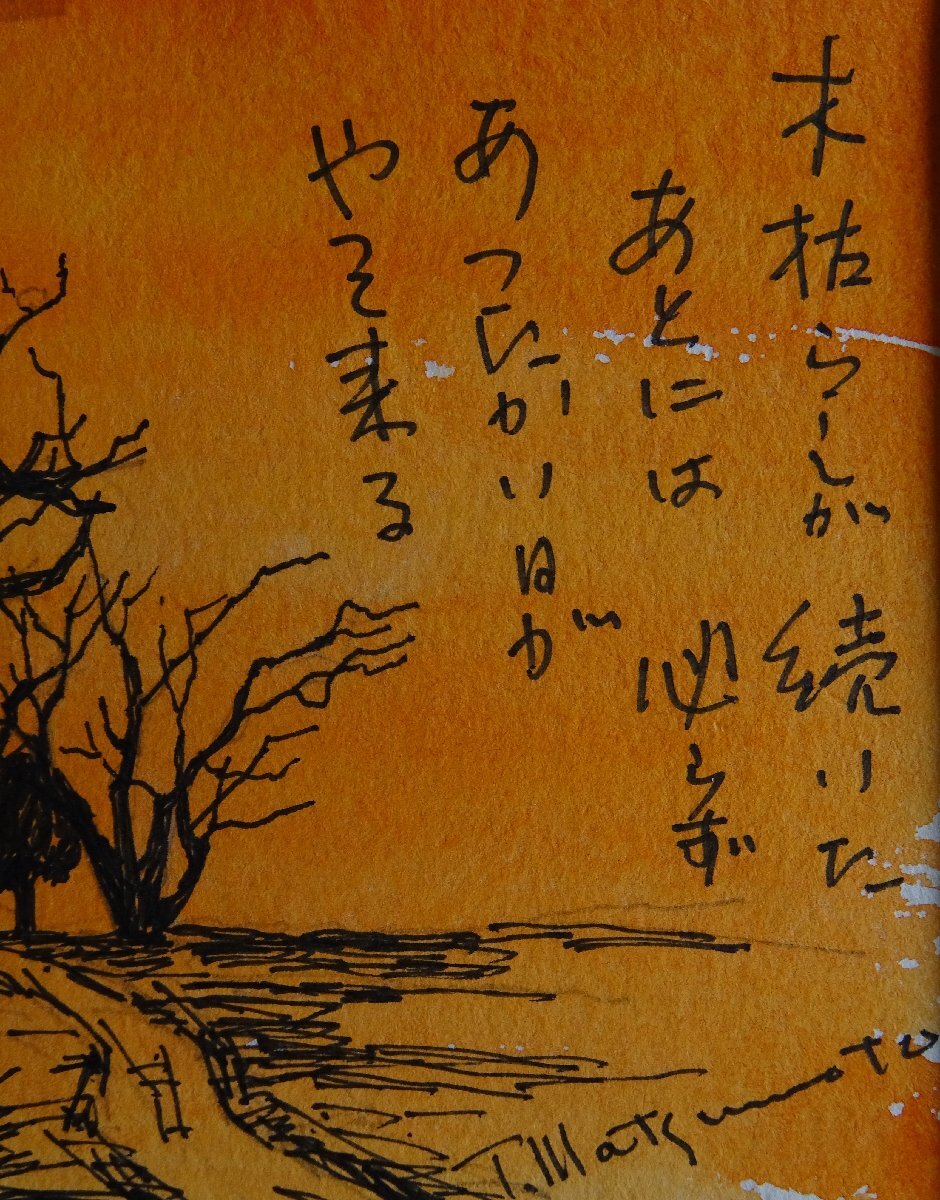 木枯らしが続いた
あとには必らず
あったかい日が
やって来る
T.Matsumoto